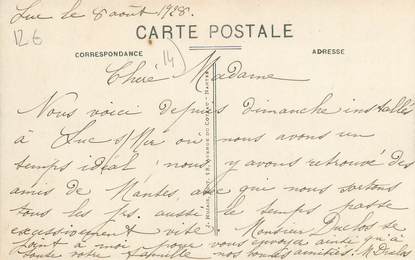 Luc le 8 août 1928.
12 €
CARTE POSTALE
CORRESPONDANCE
ADRESSE
14
Chère Madame
Nous voici depuis dimanche installés
à Luc s/Mer où nous avons un
temps idéal; nous y avons retrouvé des
amis de Nantes, avec qui nous sortons
tous les jrs. aussi le temps passe
excessivement vite. Monsieur Duclos se
joint à moi pour vous envoyer ainsi qu'à
toute votre famille nos bonnes amitiés. M Duclos